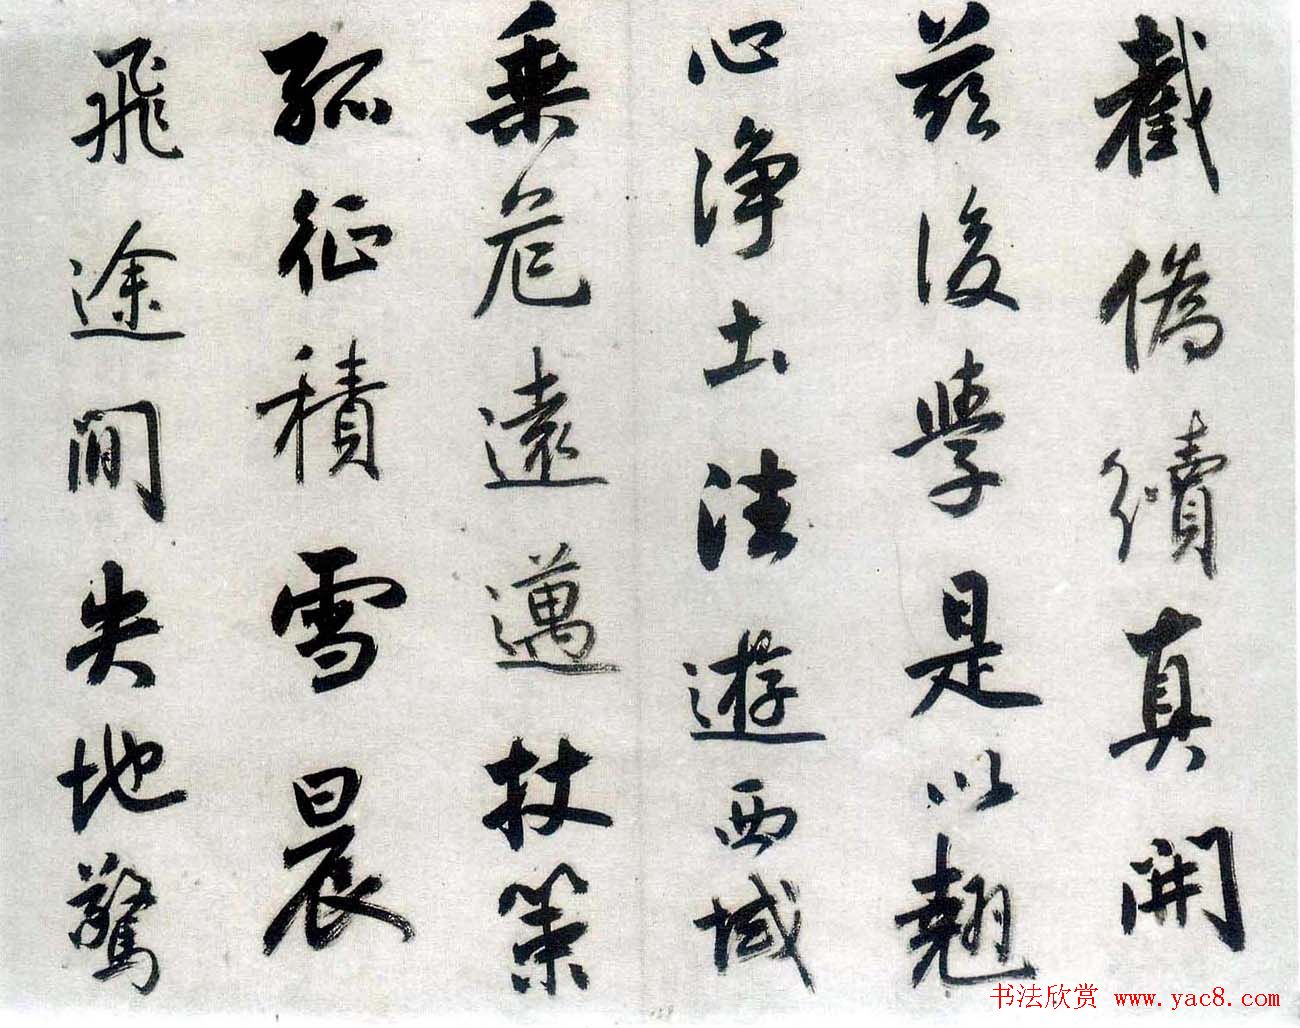 截偽續真開
茲後學是以翹
心淨土往遊西域
乘危遠邁杖策
孤征積雪晨
飛途間失地驚
书法欣赏 www.yac8.com